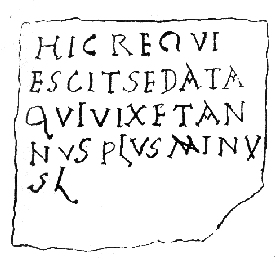 HIC REQVI
ESCIT SEDATA
QVI VIXET AN
NVS PLVS MINV
S L